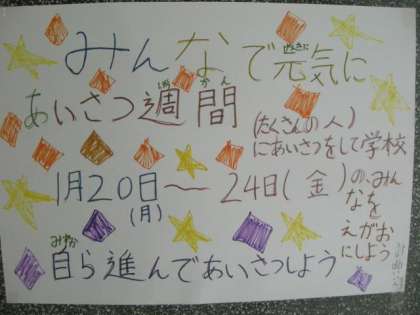 みんなで元気に
あいさつ週間
(たくさんの人)
にあいさつをして学校
1月20日〜24日(金)の、みんなを
(月)
えがおにしよう
自ら進んであいさつしよう